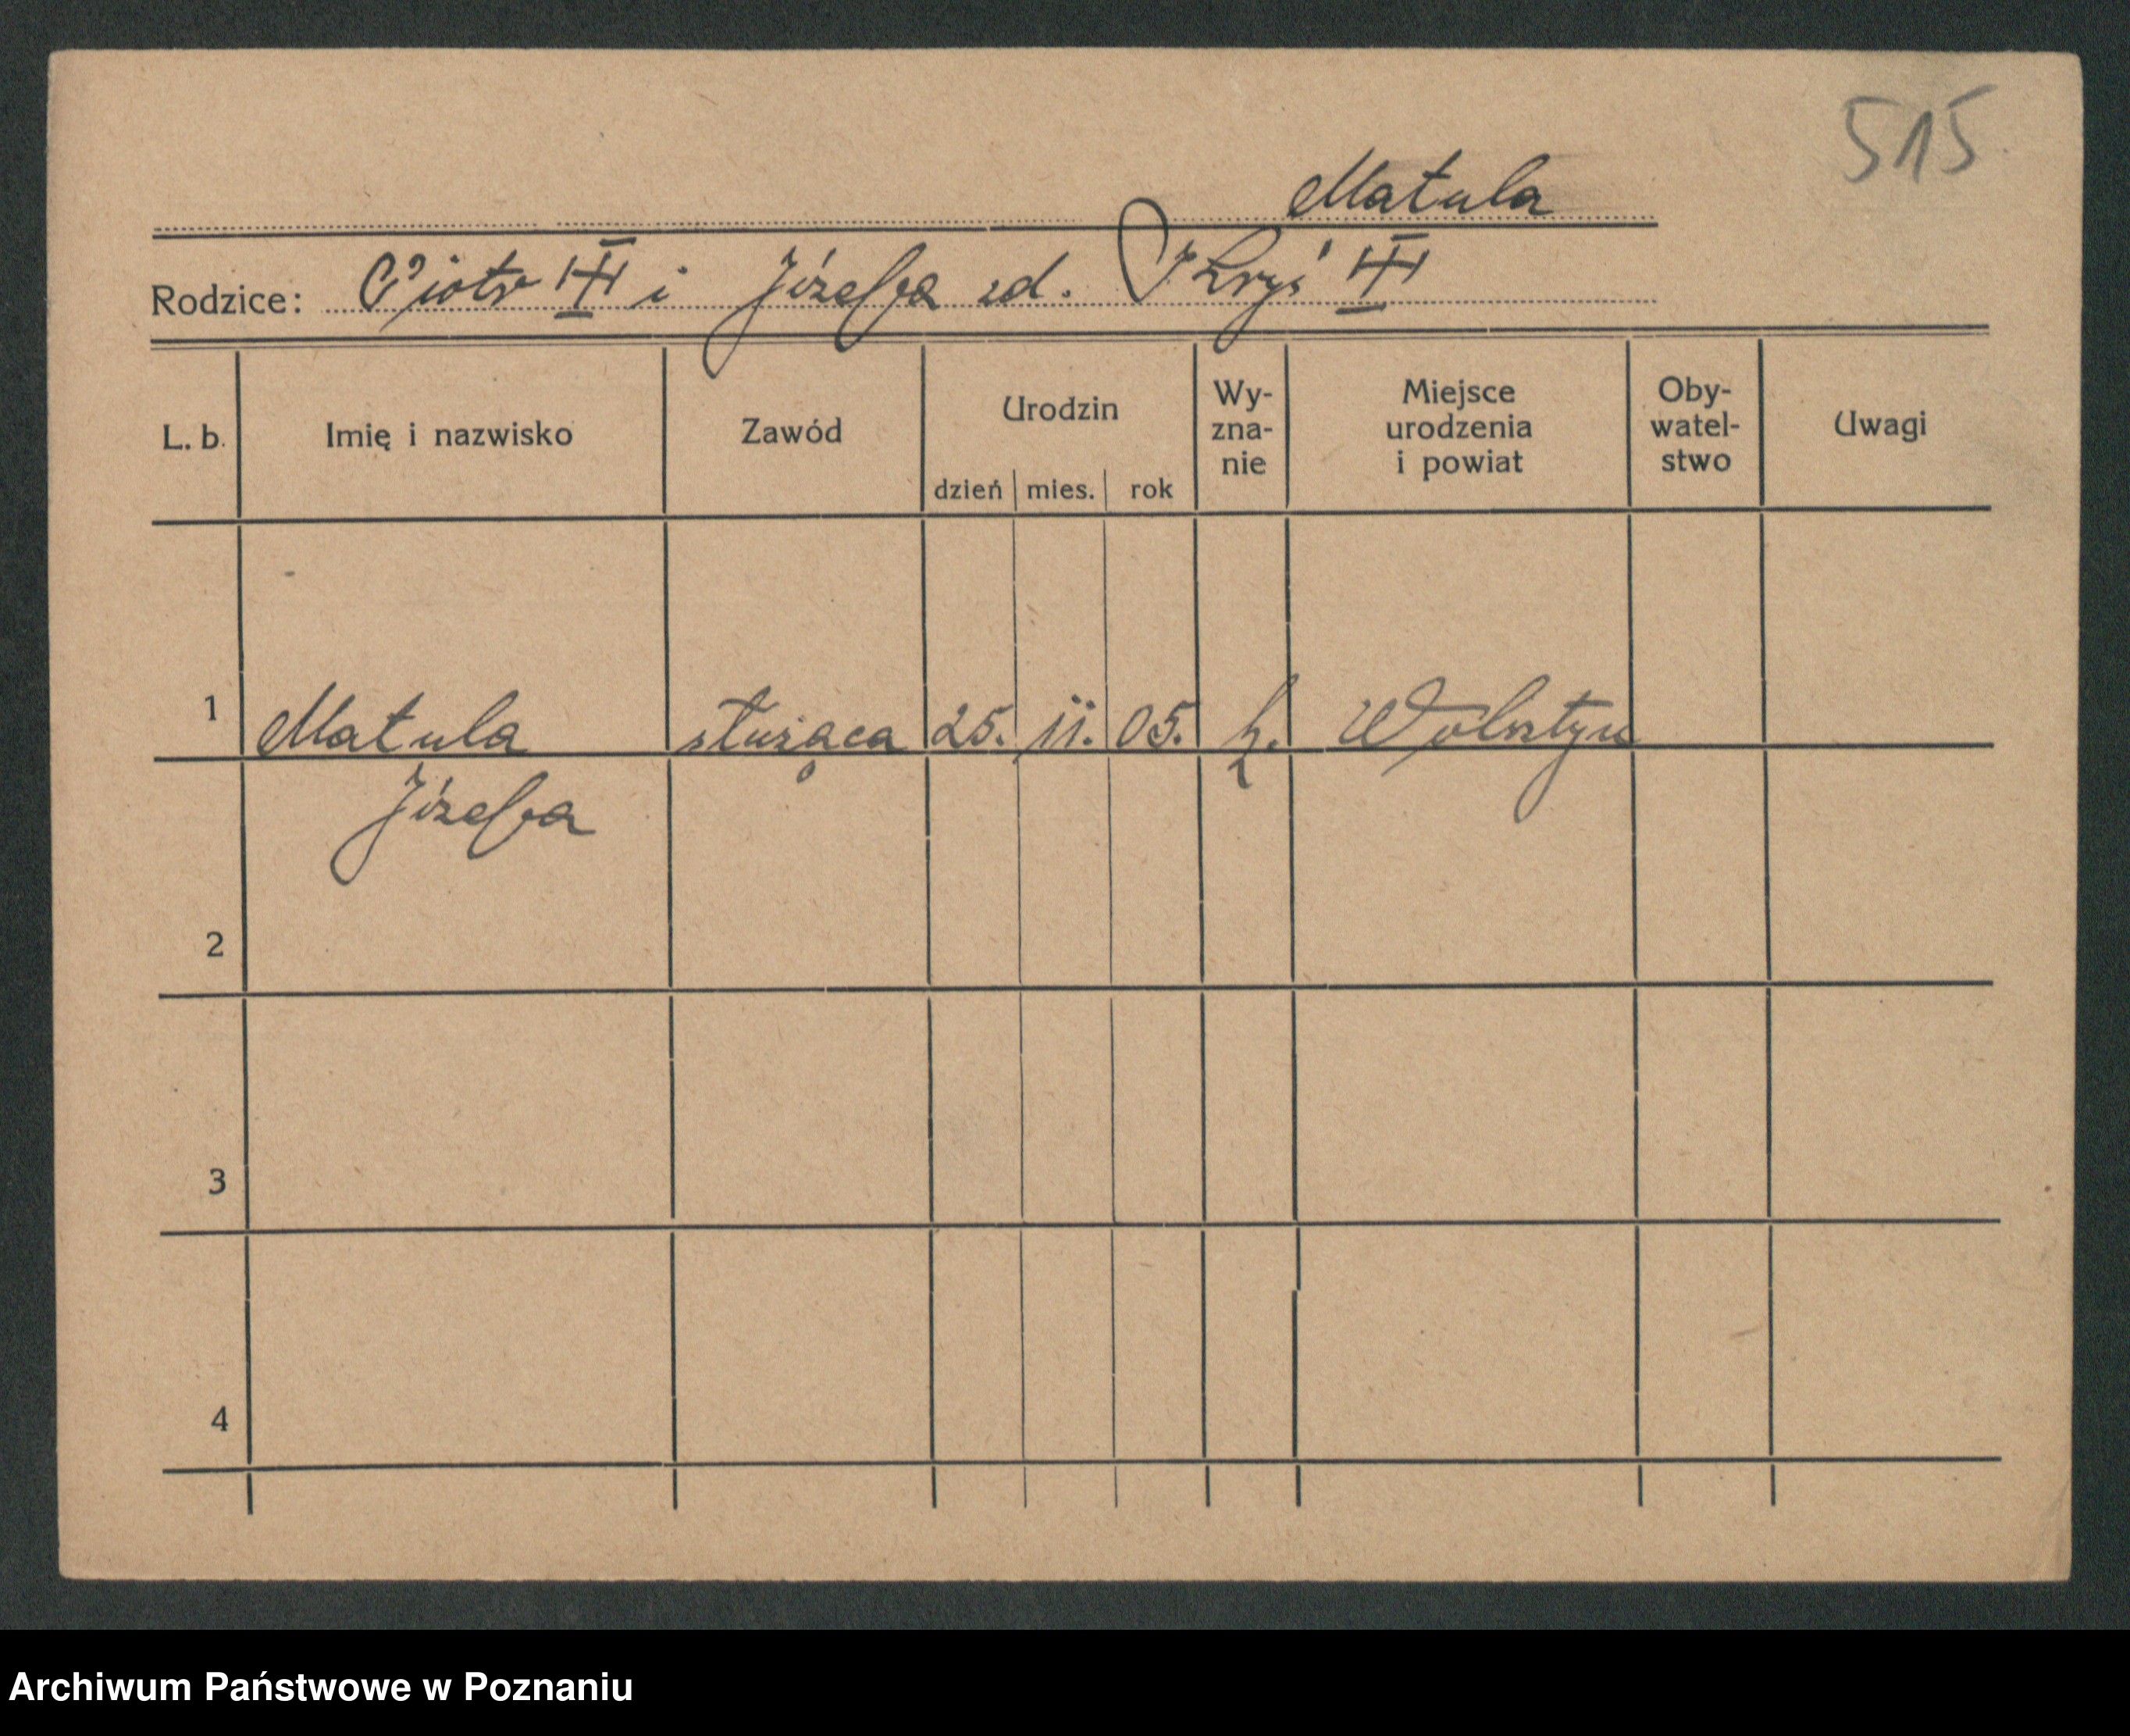 515
Matula
Rodzice: Piotr i Józefa zd.
L. b. Imię i nazwisko Zawód Urodzin dzień mies. rok Wy-zna-nie Miejsce urodzenia i powiat Oby-watel-stwo Uwagi
1 Matula służąca 25. 11. 05. k. Wolsztyn
Józefa
2
3
4
Archiwum Państwowe w Poznaniu